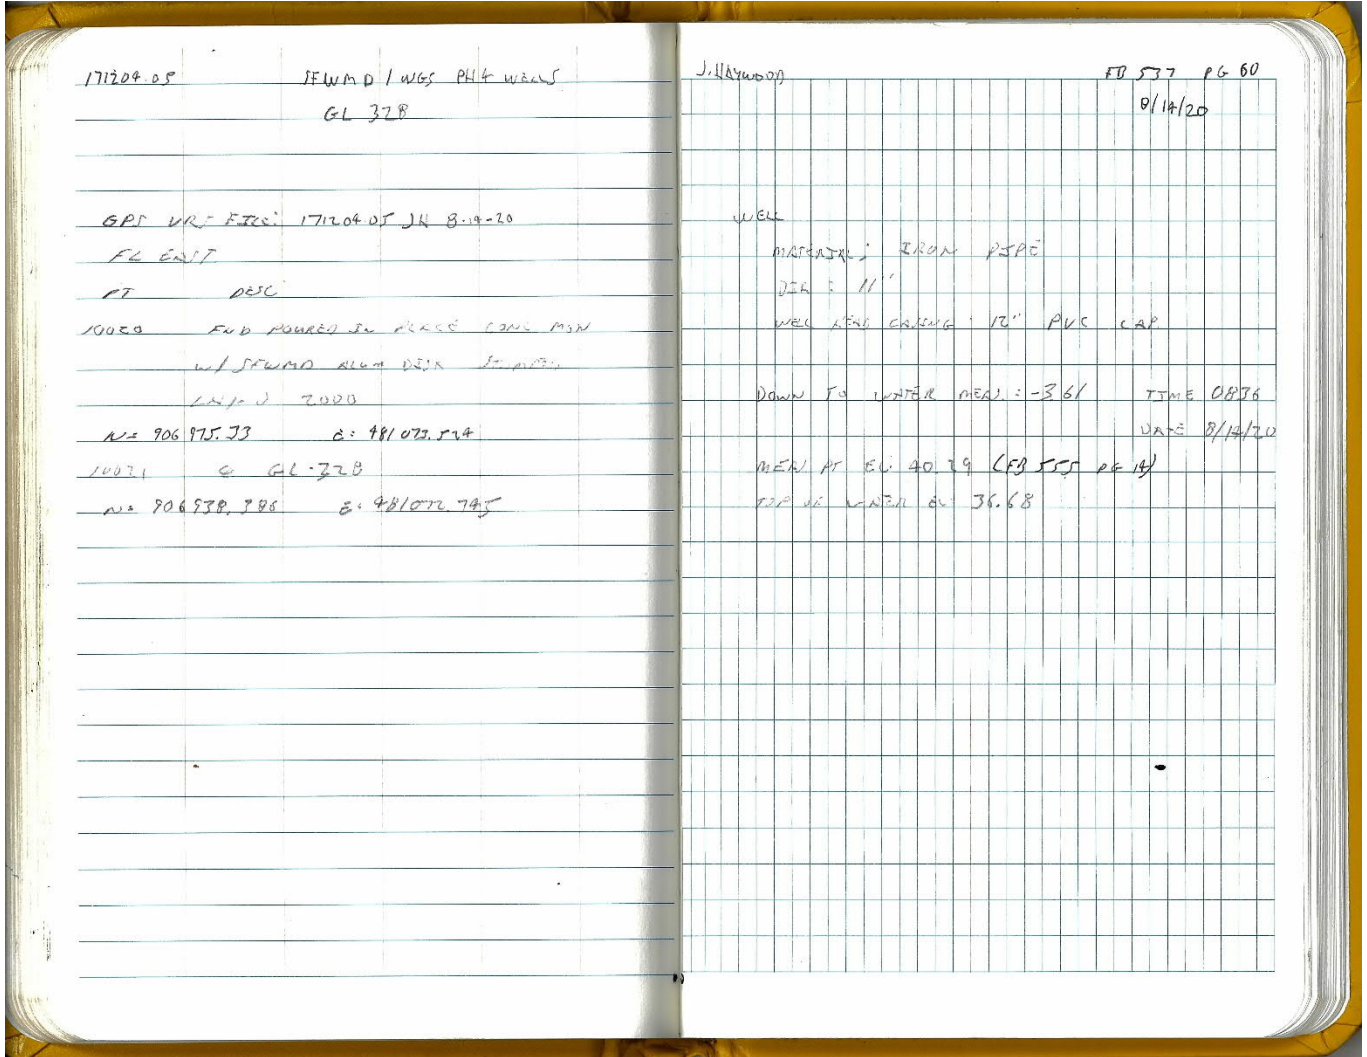 171204.05 SFWMD / WGS PH 4 WELLS
GL 328
GPS VRS FILE: 171204.05 JH 8-14-20
FL EAST
PT DESC
10020 FND POURED IN PLACE CONC MON
W/ SFWMD ALUM DISK STAMPED
2000
N= E: 481073.524
10021 ℄ GL-328
N= 906938.386 E: 481072.745
J. HAYWOOD FB 537 PG 60
8/14/20
WELL
MATERIAL: IRON PIPE
DIA : 11"
WELL HEAD CASING : 12" PVC CAP
DOWN TO WATER MEAS. : -3.61 TIME 0836
DATE 8/14/20
MEAS PT EL: 40.29 (FB 555 PG 14)
TOP OF WATER EL 36.68